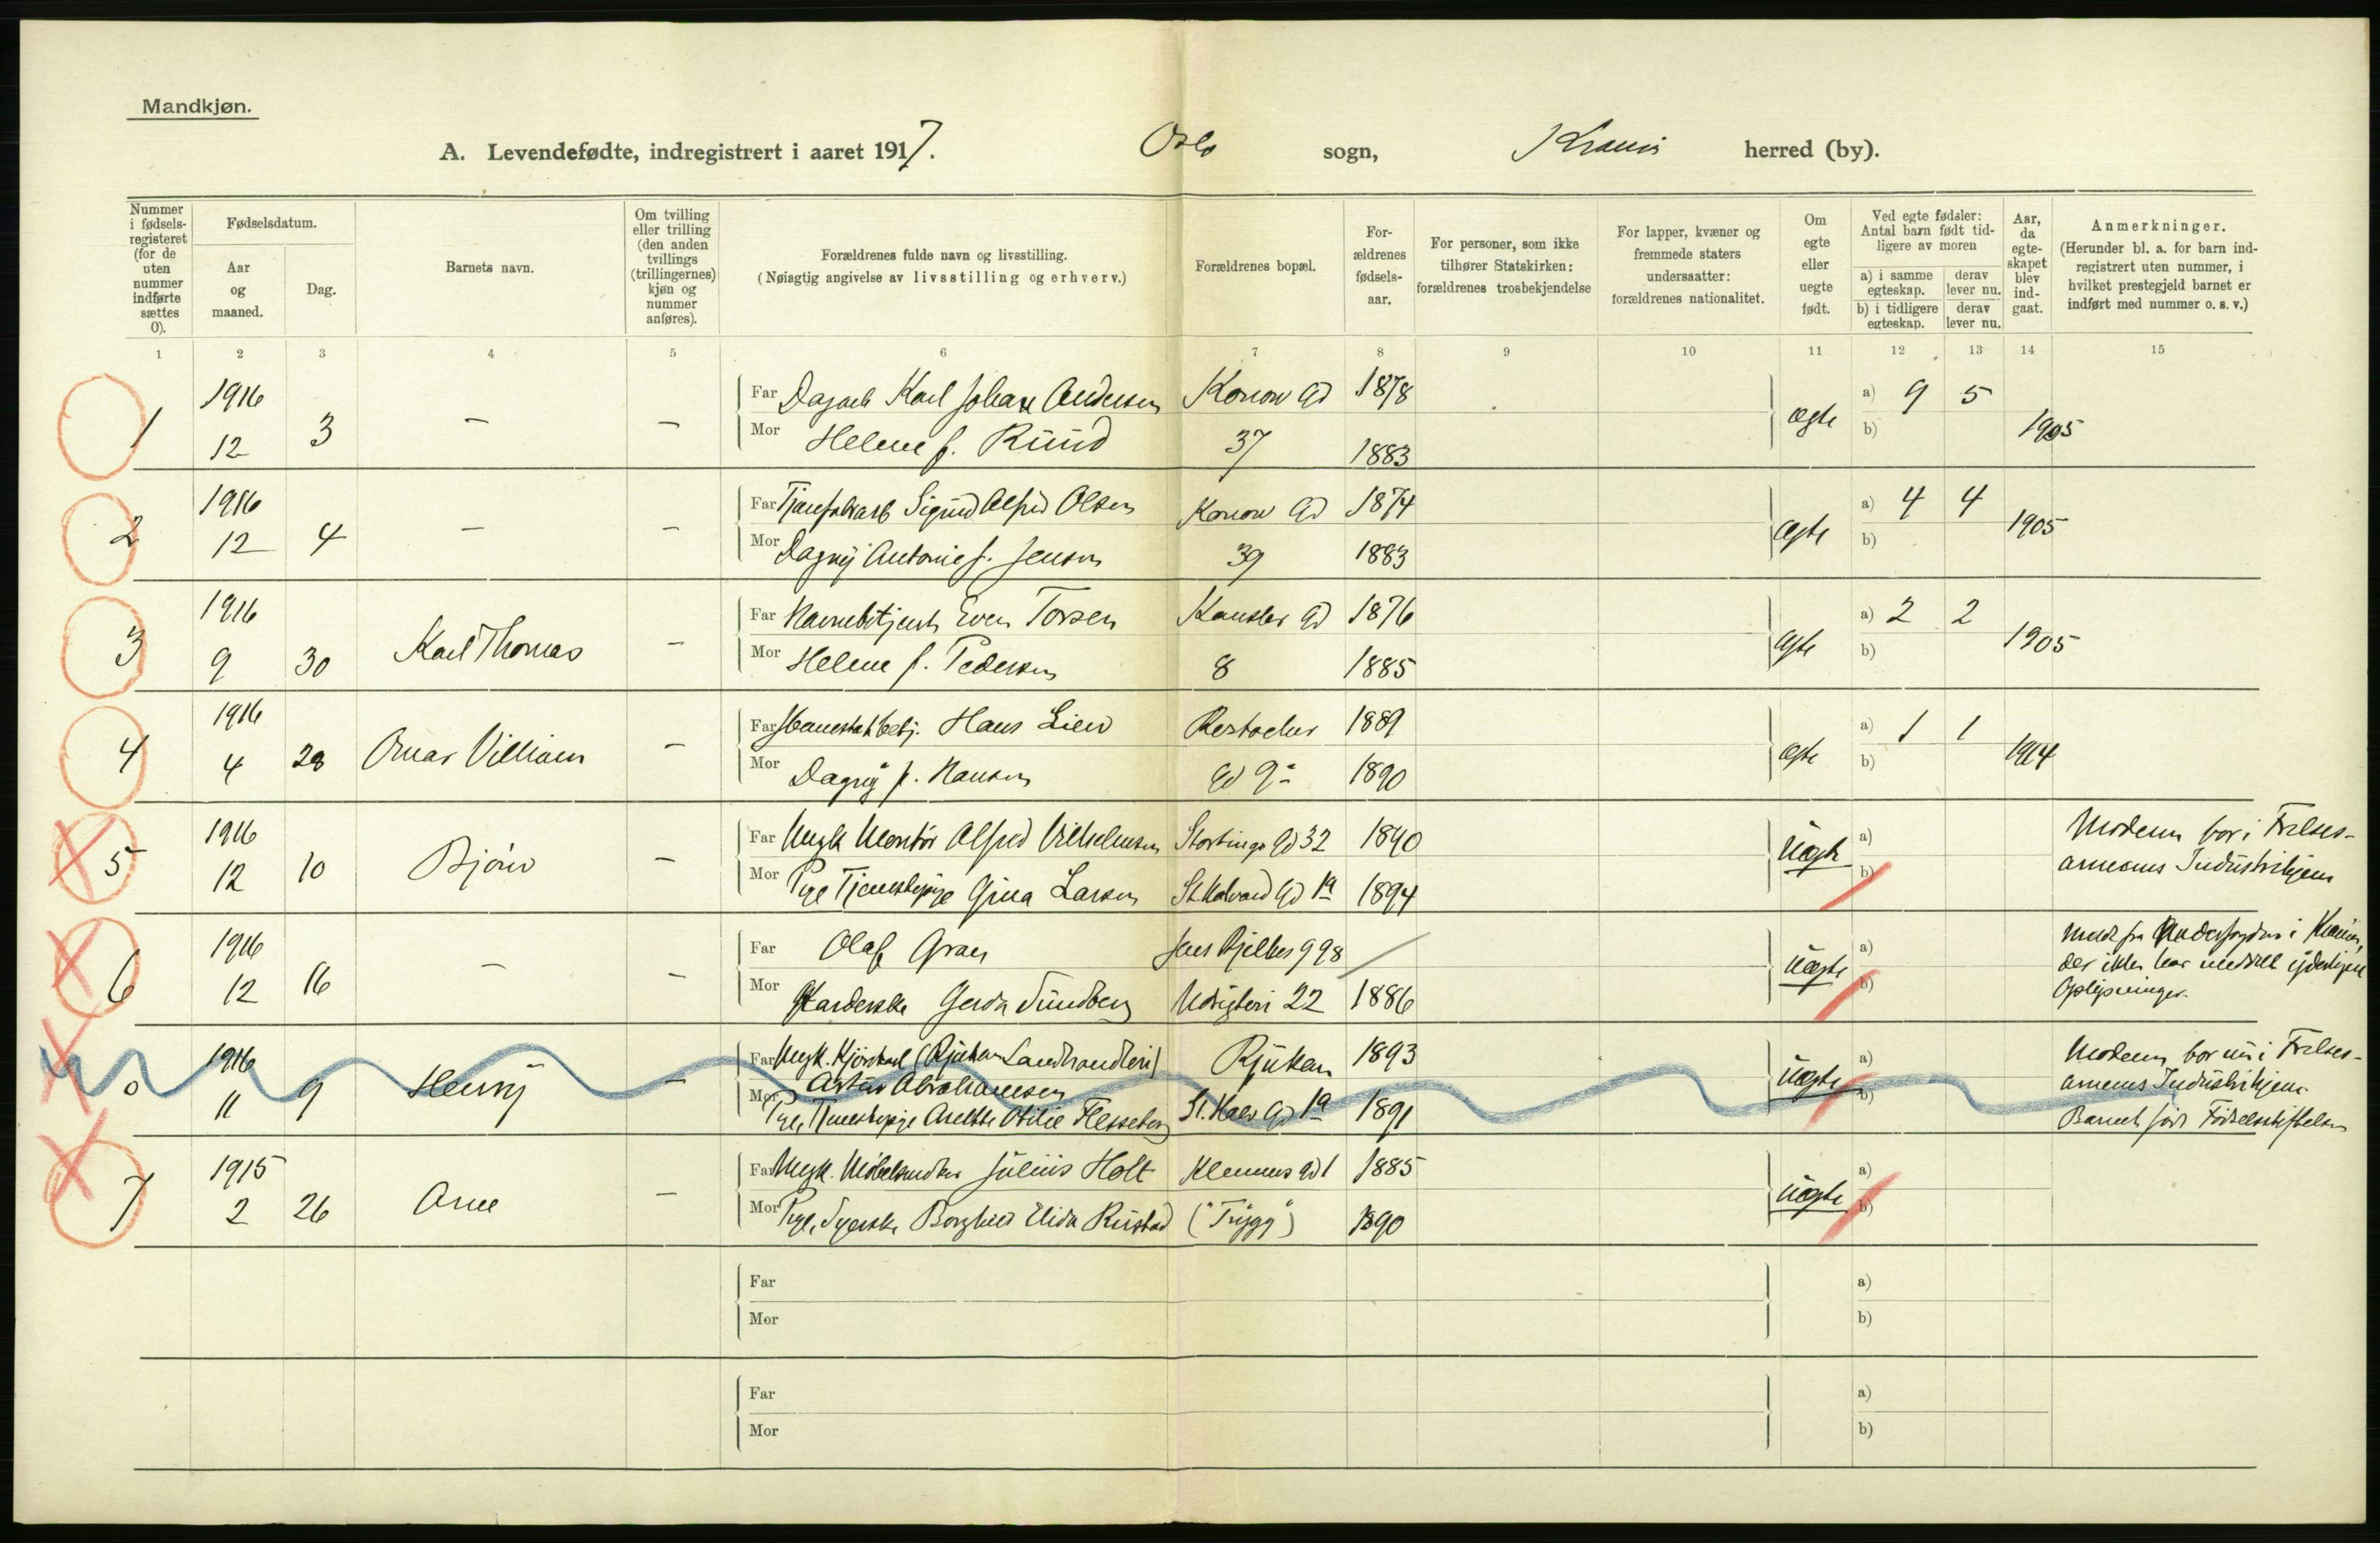 Mandkjøn.
A. Levendefødte, indregistrert i aaret 1917. Oslo sogn, Krania herred (by).
Nummer i fødsels-registeret (for de uten nummer indførte sættes 0).
Fødselsdatum.
Aar og maaned.
Dag.
Barnets navn.
Om tvilling eller trilling (den anden tvillings (trillingernes) kjøn og nummer anføres).
Forældrenes fulde navn og livsstilling.
(Nøiagtig angivelse av livsstilling og erhverv.)
Forældrenes bopæl.
For-ældrenes fødsels-aar.
For personer, som ikke tilhører Statskirken: forældrenes trosbekjendelse
For lapper, kvæner og fremmede staters undersaatter: forældrenes nationalitet.
Om egte eller uegte født.
Ved egte fødsler: Antal barn født tid-ligere av moren
a) i samme egteskap.
derav lever nu.
b) i tidligere egteskap.
derav lever nu.
Aar, da egte-skapet blev ind-gaat.
Anmerkninger.
(Herunder bl. a. for barn ind-registrert uten nummer, i hvilket prestegjeld barnet er indført med nummer o. s. v.)
1 2 3 4 5 6 7 8 9 10 11 12 13 14 15
1916 Far Dagarb Karl Johan Andersen Konow Gd 1878 a) 9 5
1 12 3 - - Mor Helene f. Ruud 37 1883 ægte b) 1905
1916 Far Sigurd Alfred Olsen Konow Gd 1874 a) 4 4
2 12 4 - - Mor Dagny Antonie f. Jensen 39 1883 ægte b) 1905
1916 Far Even Torsen Kansler Gd 1876 a) 2 2
3 9 30 Karl Thomas - Mor Helene f. Pedersen 8 1885 ægte b) 1905
1916 Far Hans Lien 1889 a) 1 1
4 4 28 Omar Villiam - Mor Dagny f. Hansen Gd 9 1890 ægte b) 1914
1916 Far Ungk Montør Alfred Vilhelmsen Stortings Gd 32 1890 a) Moderen bor i Frelses-
5 12 10 Bjørn - Mor Pige Tjenestepige Gina Larsen St. Halvard Gd 1a 1894 uegte b) armeens Industrihjem
1916 Far Olaf Gran Jens Bjelkes g 98 a)
6 12 16 - - Mor Gerda Sundberg 22 1886 uegte b) der ikke har meddelt yderligere
Oplysninger.
1916 Far Ungk. (Rjukan Landhandleri) Rjukan 1893 a) Moderen bor nu i Frelses-
0 11 9 Henry - Artur Abrahamsen uegte armeens Industrihjem.
Mor Pige, Tjenestepige Otilie St. Halv Gd 1a 1891 b) Barnet født Fødselsstiftelsen
1915 Far Ungk. Møbelsnedker Julius Holt Klemens Gd 1 1885 a)
7 2 26 Arne - Mor Pige, Syerske Borghild Elida Rustad ("Trygg") 1890 uegte b)
Far a)
Mor b)
Far a)
Mor b)